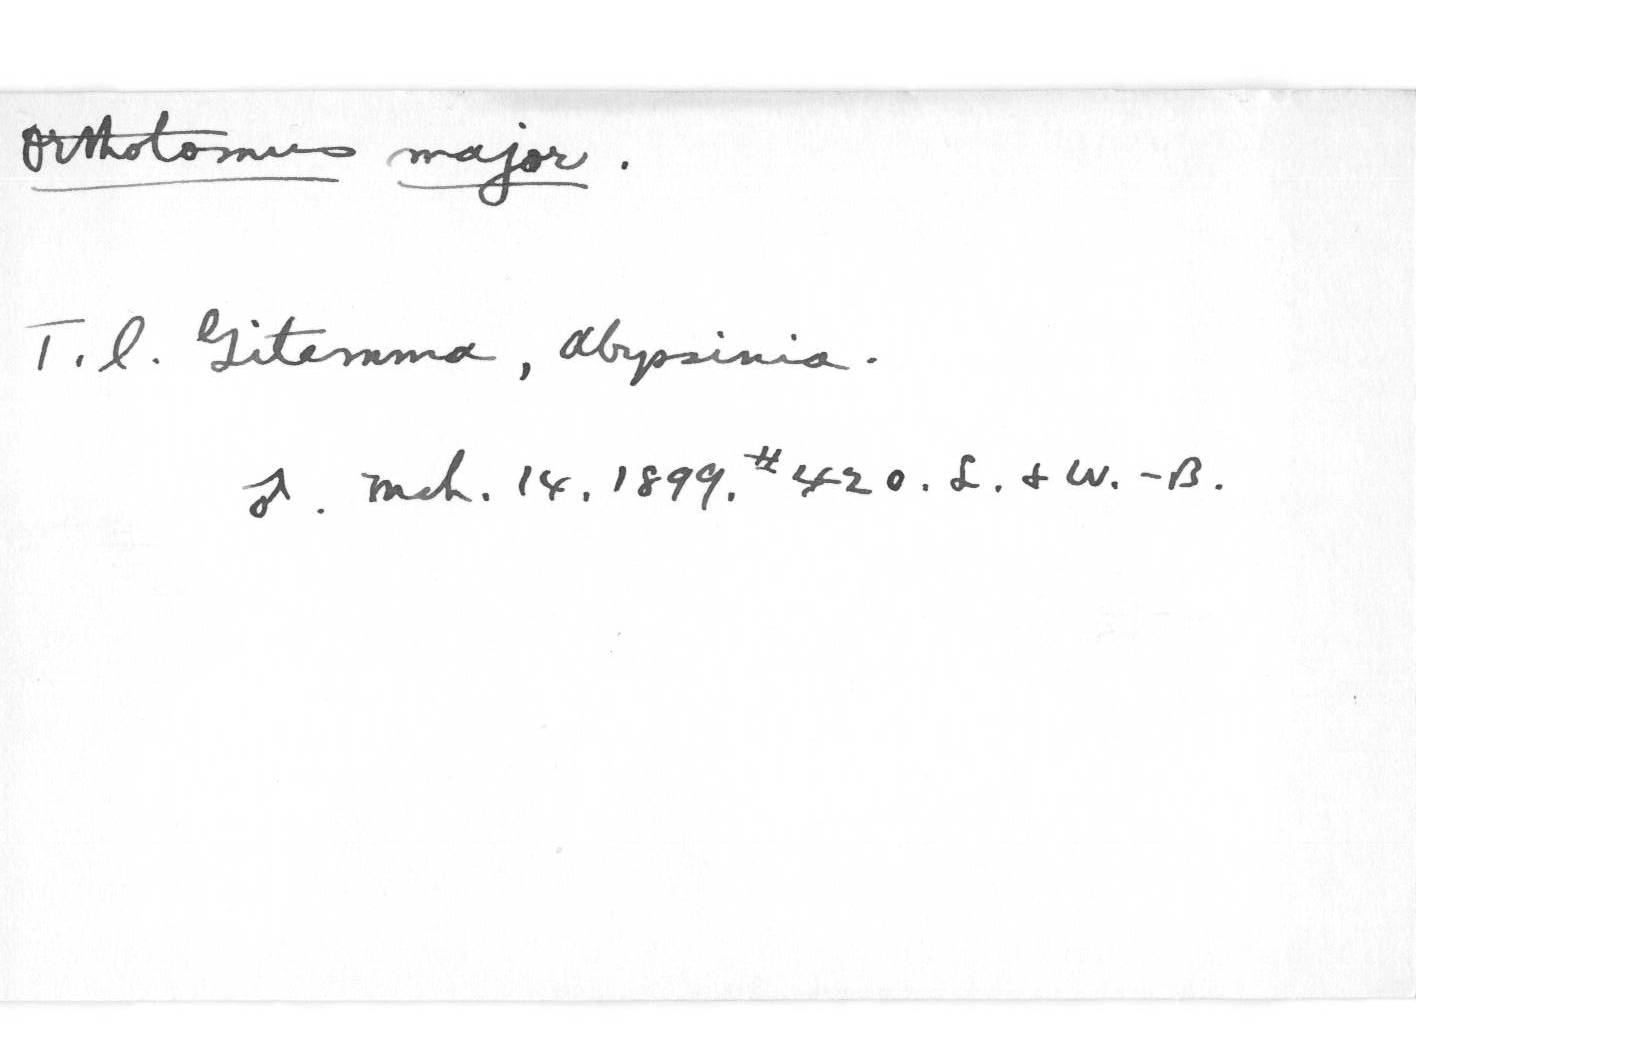 Orthotomus major.
T.l. Gitemma, Abyssinia.
♂. Mch. 14. 1899. #420. L. & W.-B.